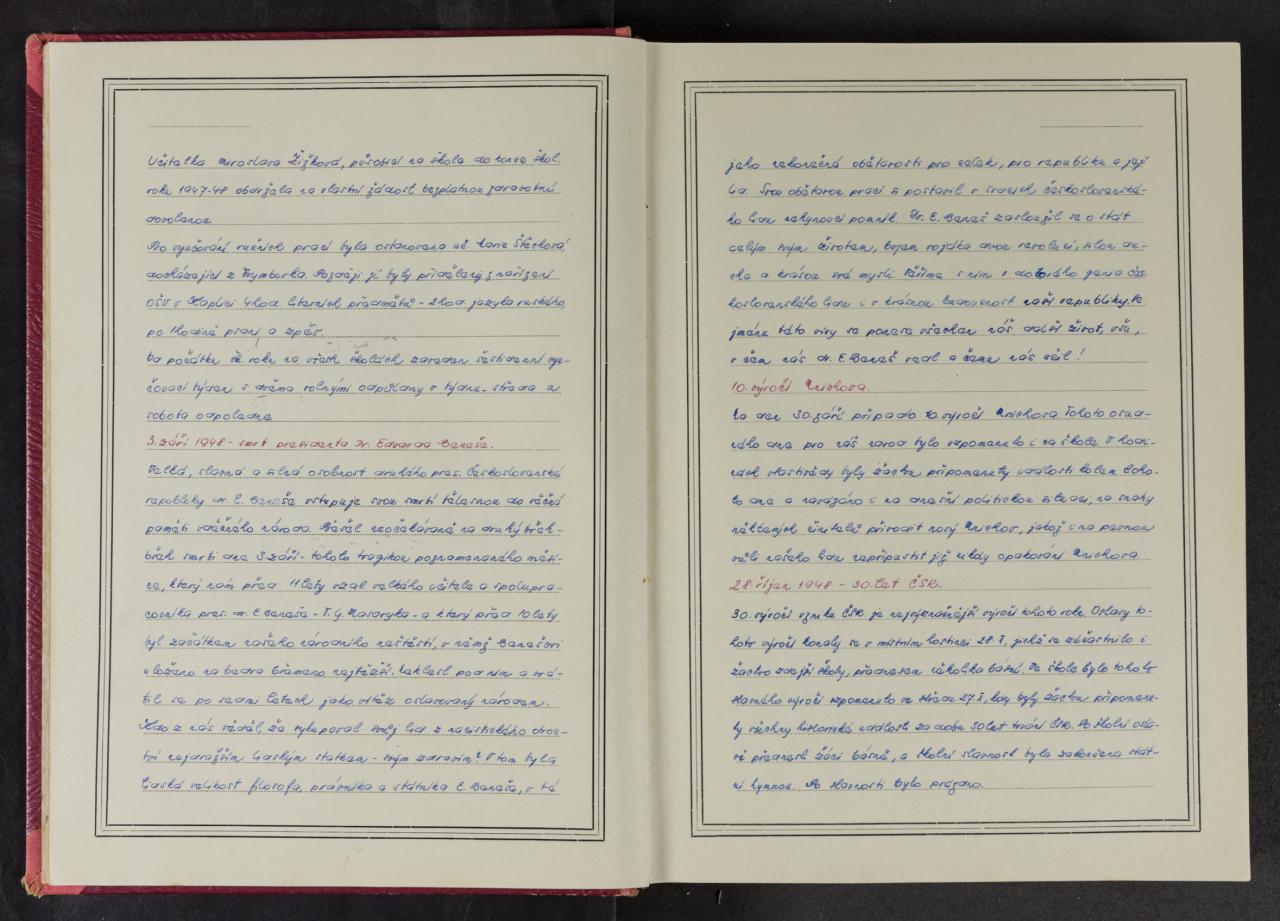 Učitelka Miroslava Žižková, působící na škole do konce škol.
roku 1947-48 obdržela na vlastní žádost bezplatnou zdravotní
dovolenou.
Pro vyučování ručních prací byla ustanovena uč. Marie Štěchová,
docházející z Rymburka. Později jí byly přiděleny z nařízení
OŠV v Kaplici 4 hod. literních předmětů - 2 hod. jazyka ruského,
po 1 hodině psaní a zpěv.
Od počátku šk. roku na všech školách zaveden šestidenní vyu-
čovací týden s dvěma volnými odpoledny v týdnu - středa a
sobota odpoledne.
3. září 1948 - smrt presidenta Dr. Edvarda Beneše.
Velká, slavná a silná osobnost druhého pres. Československé
republiky dr. E. Beneše vstupuje svou smrtí tělesnou do věčné
paměti vděčného národa. Odešel neočekávaně na druhý břeh -
břeh smrti dne 3. září - tohoto tragikou poznamenaného měsí-
ce, který nám před 11 lety vzal velkého učitele a spolupra-
covníka pres. dr. E. Beneše - T. G. Masaryka - a který před 10 lety
byl začátkem našeho národního neštěstí, v němž Benešovi
uloženo na bedra břemeno nejtěžší. Neklesl pod ním a vrá-
til se po sedmi letech jako vítěz oslavovaný národem.
Kdo z nás věděl, že vykupoval svůj lid z nacistického otroc-
tví nejdražším lidským statkem - svým zdravím? V tom byla
lidská velikost filosofa, právníka a státníka E. Beneše, v té
jeho nekonečné obětavosti pro celek, pro republiku a její
lid. Svou obětavou prací si postavil v srdcích československé-
ho lidu nehynoucí pomník. Dr. E. Beneš zasloužil se o stát
celým svým životem, bojem vojáka dvou revolucí, silou du-
cha a krásou své mysli. Věříme s ním v dobrého genia čes-
koslovenského lidu i v krásnou budoucnost naší republiky. Ve
jménu této víry se ponese všechen náš další život, vše,
v čem nás dr. E. Beneš vedl a čemu nás učil!
10. výročí Mnichova.
Na den 30. září připadlo 10. výročí Mnichova. Tohoto osud-
ného dne pro náš národ bylo vzpomenuto i na škole. V hodi-
nách vlastivědy byly žactvu připomenuty události kolem toho-
to dne a navázáno i na dnešní politickou situaci, na snahy
některých činitelů přivodit nový Mnichov, jakož i na pevnou
vůli našeho lidu nepřipustit již nikdy opakování Mnichova.
28. říjen 1948 - 30. let ČSR.
30. výročí vzniku ČSR je nejvýznačnější výročí tohoto roku. Oslavy to-
hoto výročí konaly se v místním hostinci 28. X., jichž se zúčastnilo i
žactvo zdejší školy, přednesem několika básní. Ve škole bylo tohoto
slavného výročí vzpomenuto ve středu 27. X., kdy byly žactvu připomenu-
ty všechny historické události za dobu 30 let trvání ČSR. Po školní osla-
vě přednesli žáci básně, a školní slavnost byla zakončena stát-
ní hymnou. Po slavnosti bylo prázdno.